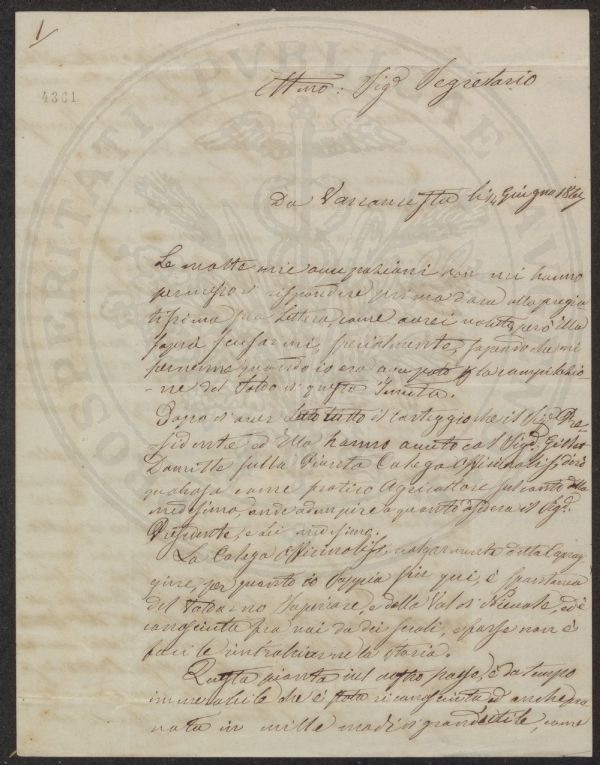 1
4361
Ill.mo: Sig.r Segretario
Da Varramista li 14 Giugno 18
Le molte mie occupazioni non mi hanno
permesso di rispondere prima d'ora alla pregia
tissima sua lettera, come avrei voluto, però Ella
saprà scusarmi, specialmente, sapendo che mi
pervenne quando io ero occupato la compilazio
-ne del Saldo di questa Tenuta.
Dopo d'aver letto tutto il carteggio che il Sig.r Pre-
-sidente, ed Ella hanno avuto col Sig.r
sulla Pianta Galega Officinalis, dirò
qualcosa come pratico Agricoltore sul conto della
medesima, onde adempire a quanto desidera il Sig.r
Presidente, e Lei medesimo.
La Galega Officinalis, volgarmente detta Caprag
gine, per quanto io sappia fin qui, è spontanea
del Valdarno Superiore, e della Val di Nievole, ed è
conosciuta fra noi da dei secoli, e forse non è
facile rintracciarne la storia.
Questa pianta nel nostro paese, è da tempo
immemorabile che è stata riconosciuta ed anche pro
vata in mille modi di grand'utile, come